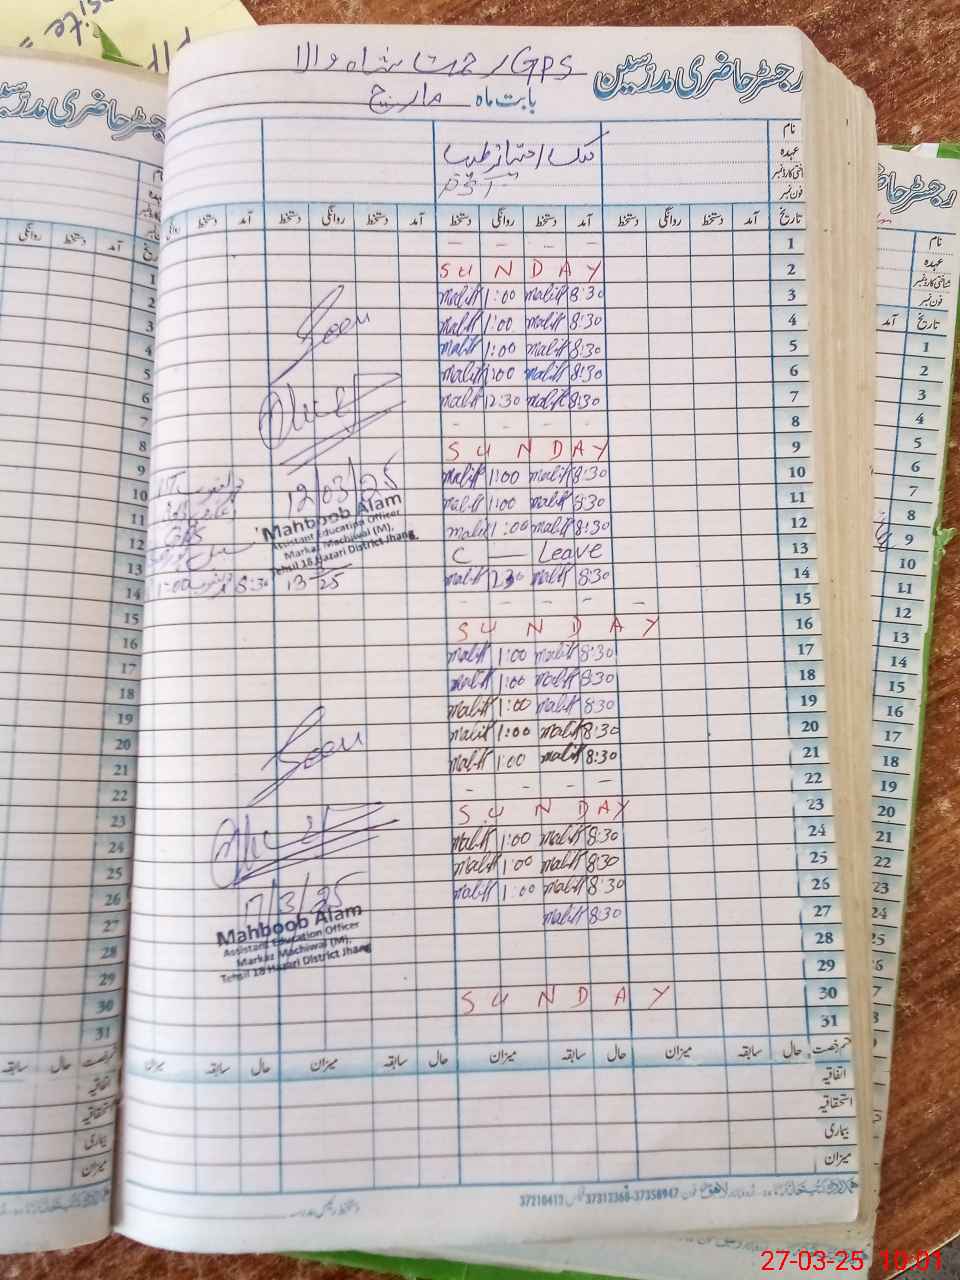 رجسٹر حاضری مدرسین
GPS رحمت شاہ والا
بابت ماہ مارچ
نام
عہدہ
شناختی کارڈ نمبر
فون نمبر
ملک امتیاز طیب
تاریخ آمد دستخط روانگی دستخط آمد دستخط روانگی دستخط آمد دستخط روانگی دستخط آمد روانگی
1 - - - -
2 SUNDAY
3 Malik 1:00 Malik 8:30
4 Malik 1:00 Malik 8:30
5 Malik 1:00 Malik 8:30
6 Malik 1:00 Malik 8:30
7 Malik 12:30 Malik 8:30
8 - - - -
9 SUNDAY
10 Malik 1:00 Malik 8:30
11 Malik 1:00 Malik 8:30
12 Malik 1:00 Malik 8:30
13 C — Leave
14 Malik 12:30 Malik 8:30
15 - - - - -
16 SUNDAY
17 Malik 1:00 Malik 8:30
18 Malik 1:00 Malik 8:30
19 Malik 1:00 Malik 8:30
20 Malik 1:00 Malik 8:30
21 Malik 1:00 Malik 8:30
22 - - - -
23 SUNDAY
24 Malik 1:00 Malik 8:30
25 Malik 1:00 Malik 8:30
26 Malik 1:00 Malik 8:30
27 Malik 8:30
28
29
30 SUNDAY
31
Seen
12/03/25
Mahboob Alam
Assistant Education Officer
Markaz Machiwal (M),
Tehsil 18 Hazari District Jhang
GPS
1:00 8:30 13-3-25
Seen
17/3/25
Mahboob Alam
Assistant Education Officer
Markaz Machiwal (M),
Tehsil 18 Hazari District Jhang
قسم رخصت حال سابقہ میزان حال سابقہ میزان حال سابقہ میزان حال سابقہ میزان
اتفاقیہ
استحقاقیہ
بیماری
میزان
37210417 37312368-37358947 فون
رجسٹر حاضری مدرسین
نام
عہدہ
شناختی کارڈ نمبر
فون نمبر
تاریخ آمد
27-03-25 10:01